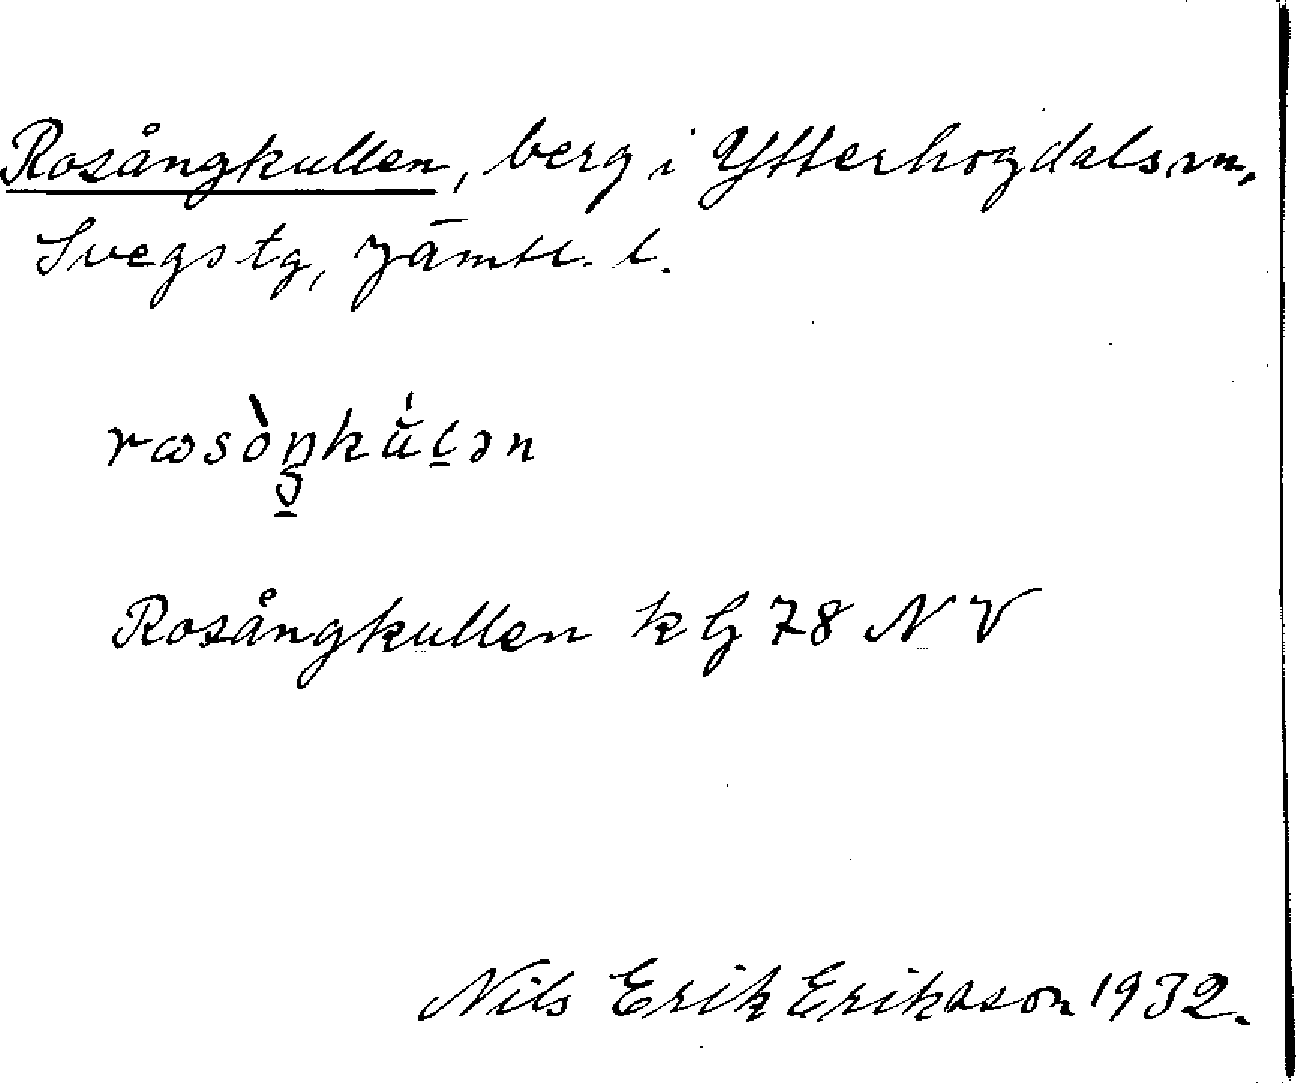 Rosångkullen, berg i Ytterhogdals sn,
Svegs tg, Jämtl. l.
Rosångkullen kG 78 NV
Nils Erik Eriksson 1932.